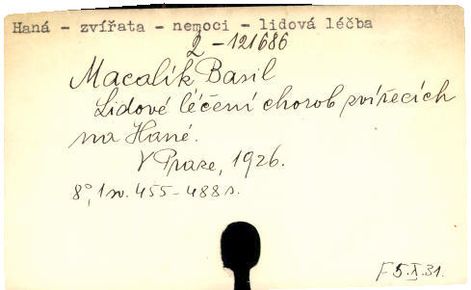 Haná - zvířata - nemoci - lidová léčba
2-121686
Macalík Basil
Lidové léčení chorob zvířecích
na Hané.
V Praze, 1926.
8°, 1 sv. 455-488 s.
F 5.X.31.